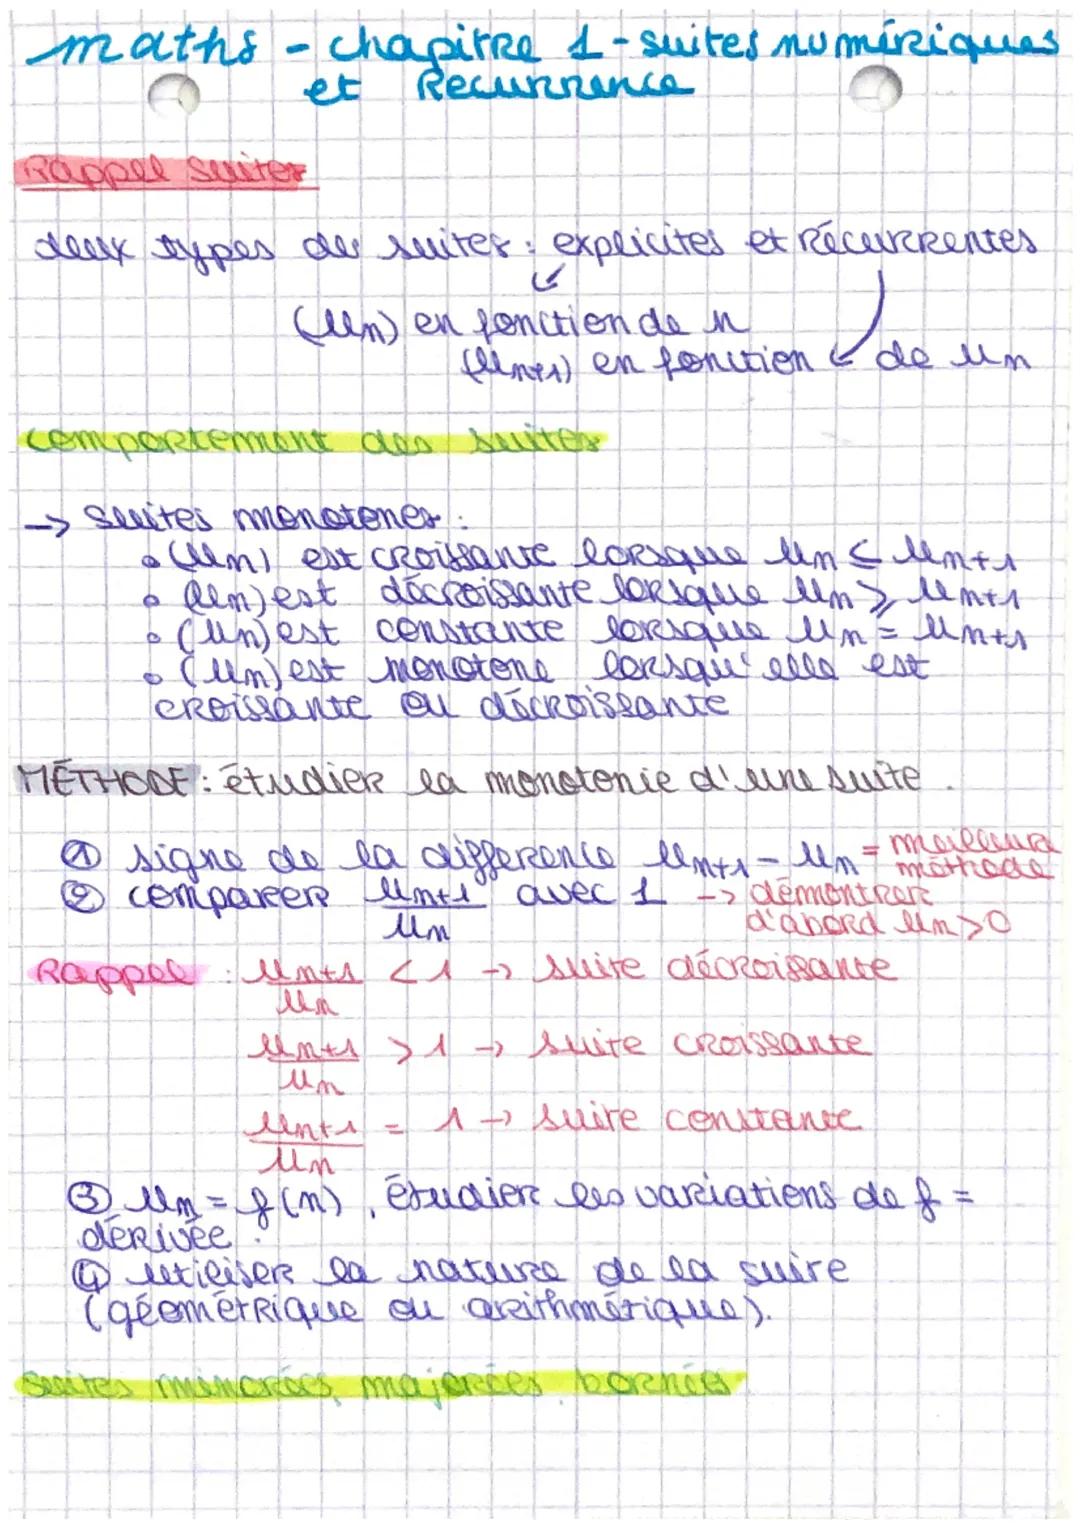 maths - chapitre 1 - suites numériques
et Recurrence
Rappel suites
deux types de suites : explicites et récurrentes
(Un) en fonction de n
(Un+1) en fonction de Un
comportement des suites
-> suites monotones :
• (Un) est croissante lorsque Un ≤ Un+1
• (Un) est décroissante lorsque Un ≥ Un+1
• (Un) est constante lorsque Un = Un+1
• (Un) est monotone lorsqu'elle est
croissante ou décroissante
MÉTHODE : étudier la monotonie d'une suite.
① signe de la différence Un+1 - Un = meilleure
méthode
② comparer Un+1/Un avec 1 -> démontrer
d'abord Un>0
Rappel : Un+1/Un < 1 -> suite décroissante
Un+1/Un > 1 -> suite croissante
Un+1/Un = 1 -> suite constante
③ Un = f(n), étudier les variations de f =
dérivée.
④ utiliser la nature de la suite
(géométrique ou arithmétique).
suites minorées majorées bornées